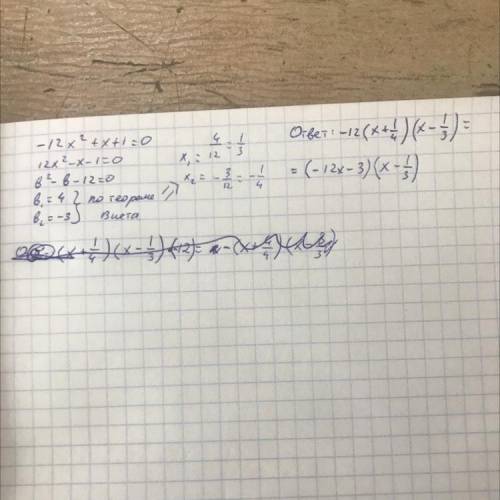 -12x² + x + 1 = 0
12x² - x - 1 = 0
b² - b - 12 = 0
b₁ = 4 } по теореме
b₂ = -3 } Виета
x₁ = 4/12 = 1/3
x₂ = -3/12 = -1/4
Ответ: -12(x + 1/4)(x - 1/3) =
= (-12x - 3)(x - 1/3)
(x + 1/4)(x - 1/3)